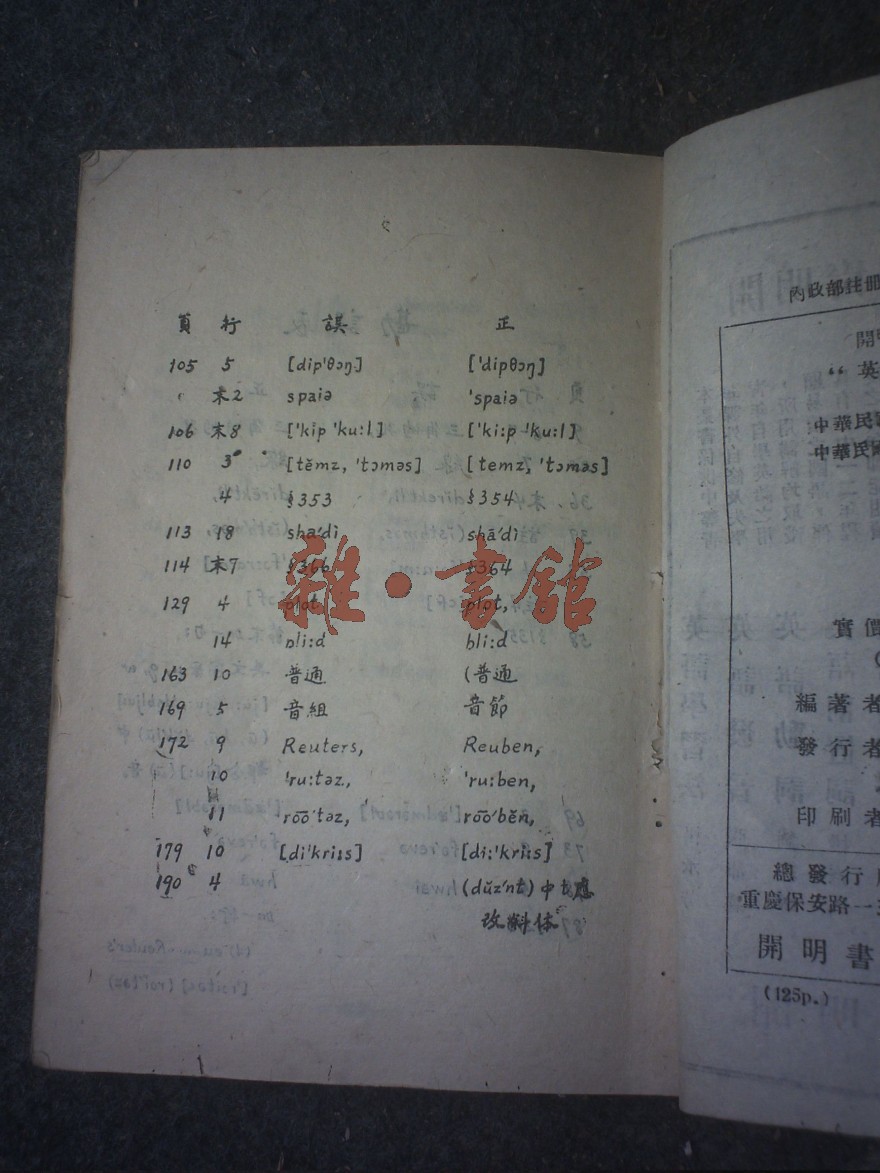 頁 行 誤 正
105 5 [dip'θɔŋ] ['dipθɔŋ]
末2 spaiə 'spaiə
106 末8 ['kip 'ku:l] ['ki:p 'ku:l]
110 3 [tĕmz, 'tɔməs] [temz, 'tɔməs]
4 §353 §354
113 18 sha'dĭ shā'dĭ
114 末7 §366 §364
129 4 plot, plɔt,
14 nli:d bli:d
163 10 普通 (普通
169 5 音組 音節
172 9 Reuters, Reuben,
10 'ru:təz, 'ru:ben,
11 rōō'təz, rōō'bĕn,
179 10 [di'kri:s] [di:'kri:s]
190 4 (dŭz'nt) 中 t 應
改斜体
雜·書館
內政部註冊
開
“英
中華民
中華民
實價
編著者
發行者
印刷者
總發行
重慶保安路一
開明書
(125p.)